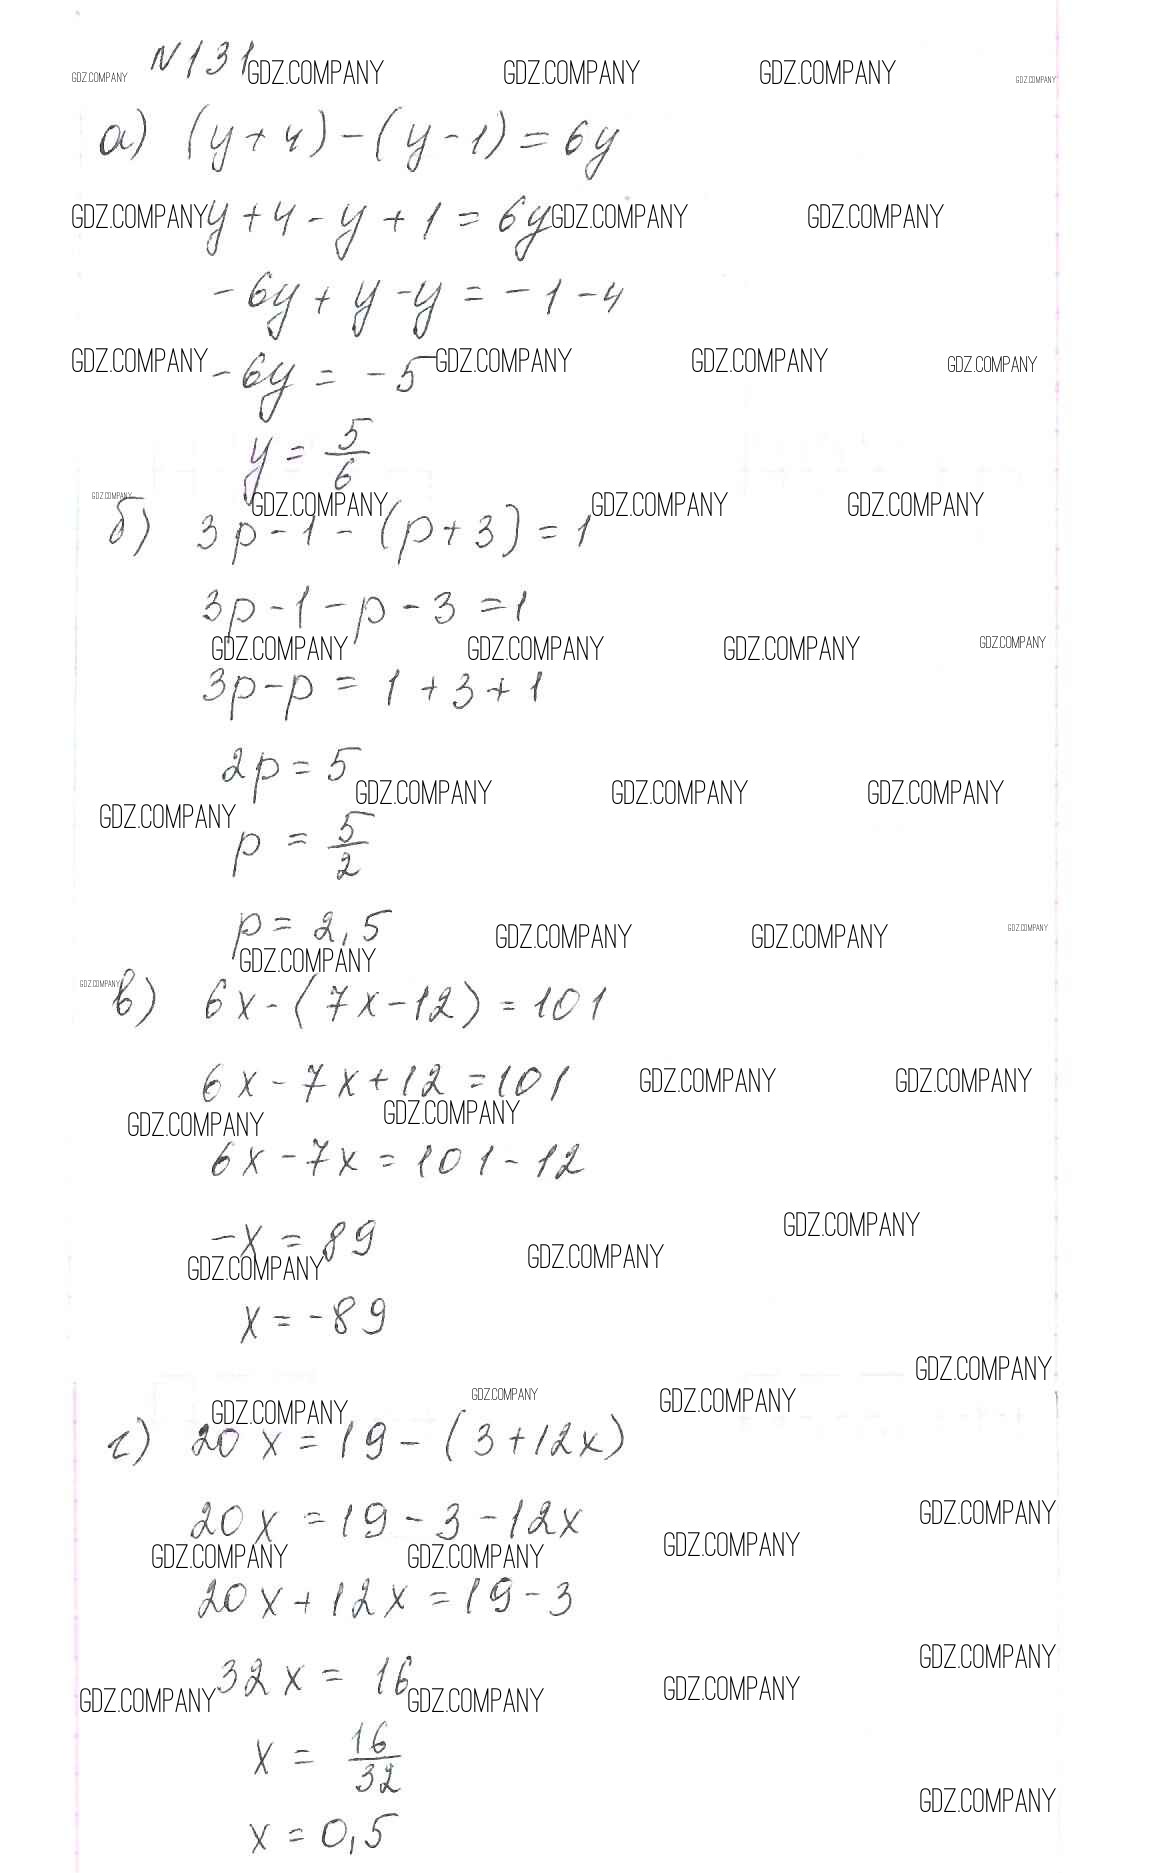 N131
GDZ.COMPANY GDZ.COMPANY GDZ.COMPANY GDZ.COMPANY GDZ.COMPANY
а) (y+4)-(y-1)=6y
GDZ.COMPANY y+4-y+1=6y GDZ.COMPANY GDZ.COMPANY
-6y+y-y=-1-4
GDZ.COMPANY -6y=-5 GDZ.COMPANY GDZ.COMPANY GDZ.COMPANY
y=5/6
GDZ.COMPANY GDZ.COMPANY GDZ.COMPANY GDZ.COMPANY
б) 3p-1-(p+3)=1
3p-1-p-3=1
GDZ.COMPANY GDZ.COMPANY GDZ.COMPANY GDZ.COMPANY
3p-p=1+3+1
2p=5
GDZ.COMPANY GDZ.COMPANY GDZ.COMPANY GDZ.COMPANY
p=5/2
p=2,5
GDZ.COMPANY GDZ.COMPANY GDZ.COMPANY
GDZ.COMPANY
GDZ.COMPANY
в) 6x-(7x-12)=101
6x-7x+12=101
GDZ.COMPANY GDZ.COMPANY
GDZ.COMPANY GDZ.COMPANY
6x-7x=101-12
-x=89
GDZ.COMPANY
GDZ.COMPANY GDZ.COMPANY
x=-89
GDZ.COMPANY
GDZ.COMPANY GDZ.COMPANY GDZ.COMPANY
г) 20x=19-(3+12x)
20x=19-3-12x
GDZ.COMPANY
GDZ.COMPANY GDZ.COMPANY GDZ.COMPANY
20x+12x=19-3
GDZ.COMPANY
32x=16
GDZ.COMPANY GDZ.COMPANY GDZ.COMPANY
x=16/32
GDZ.COMPANY
x=0,5